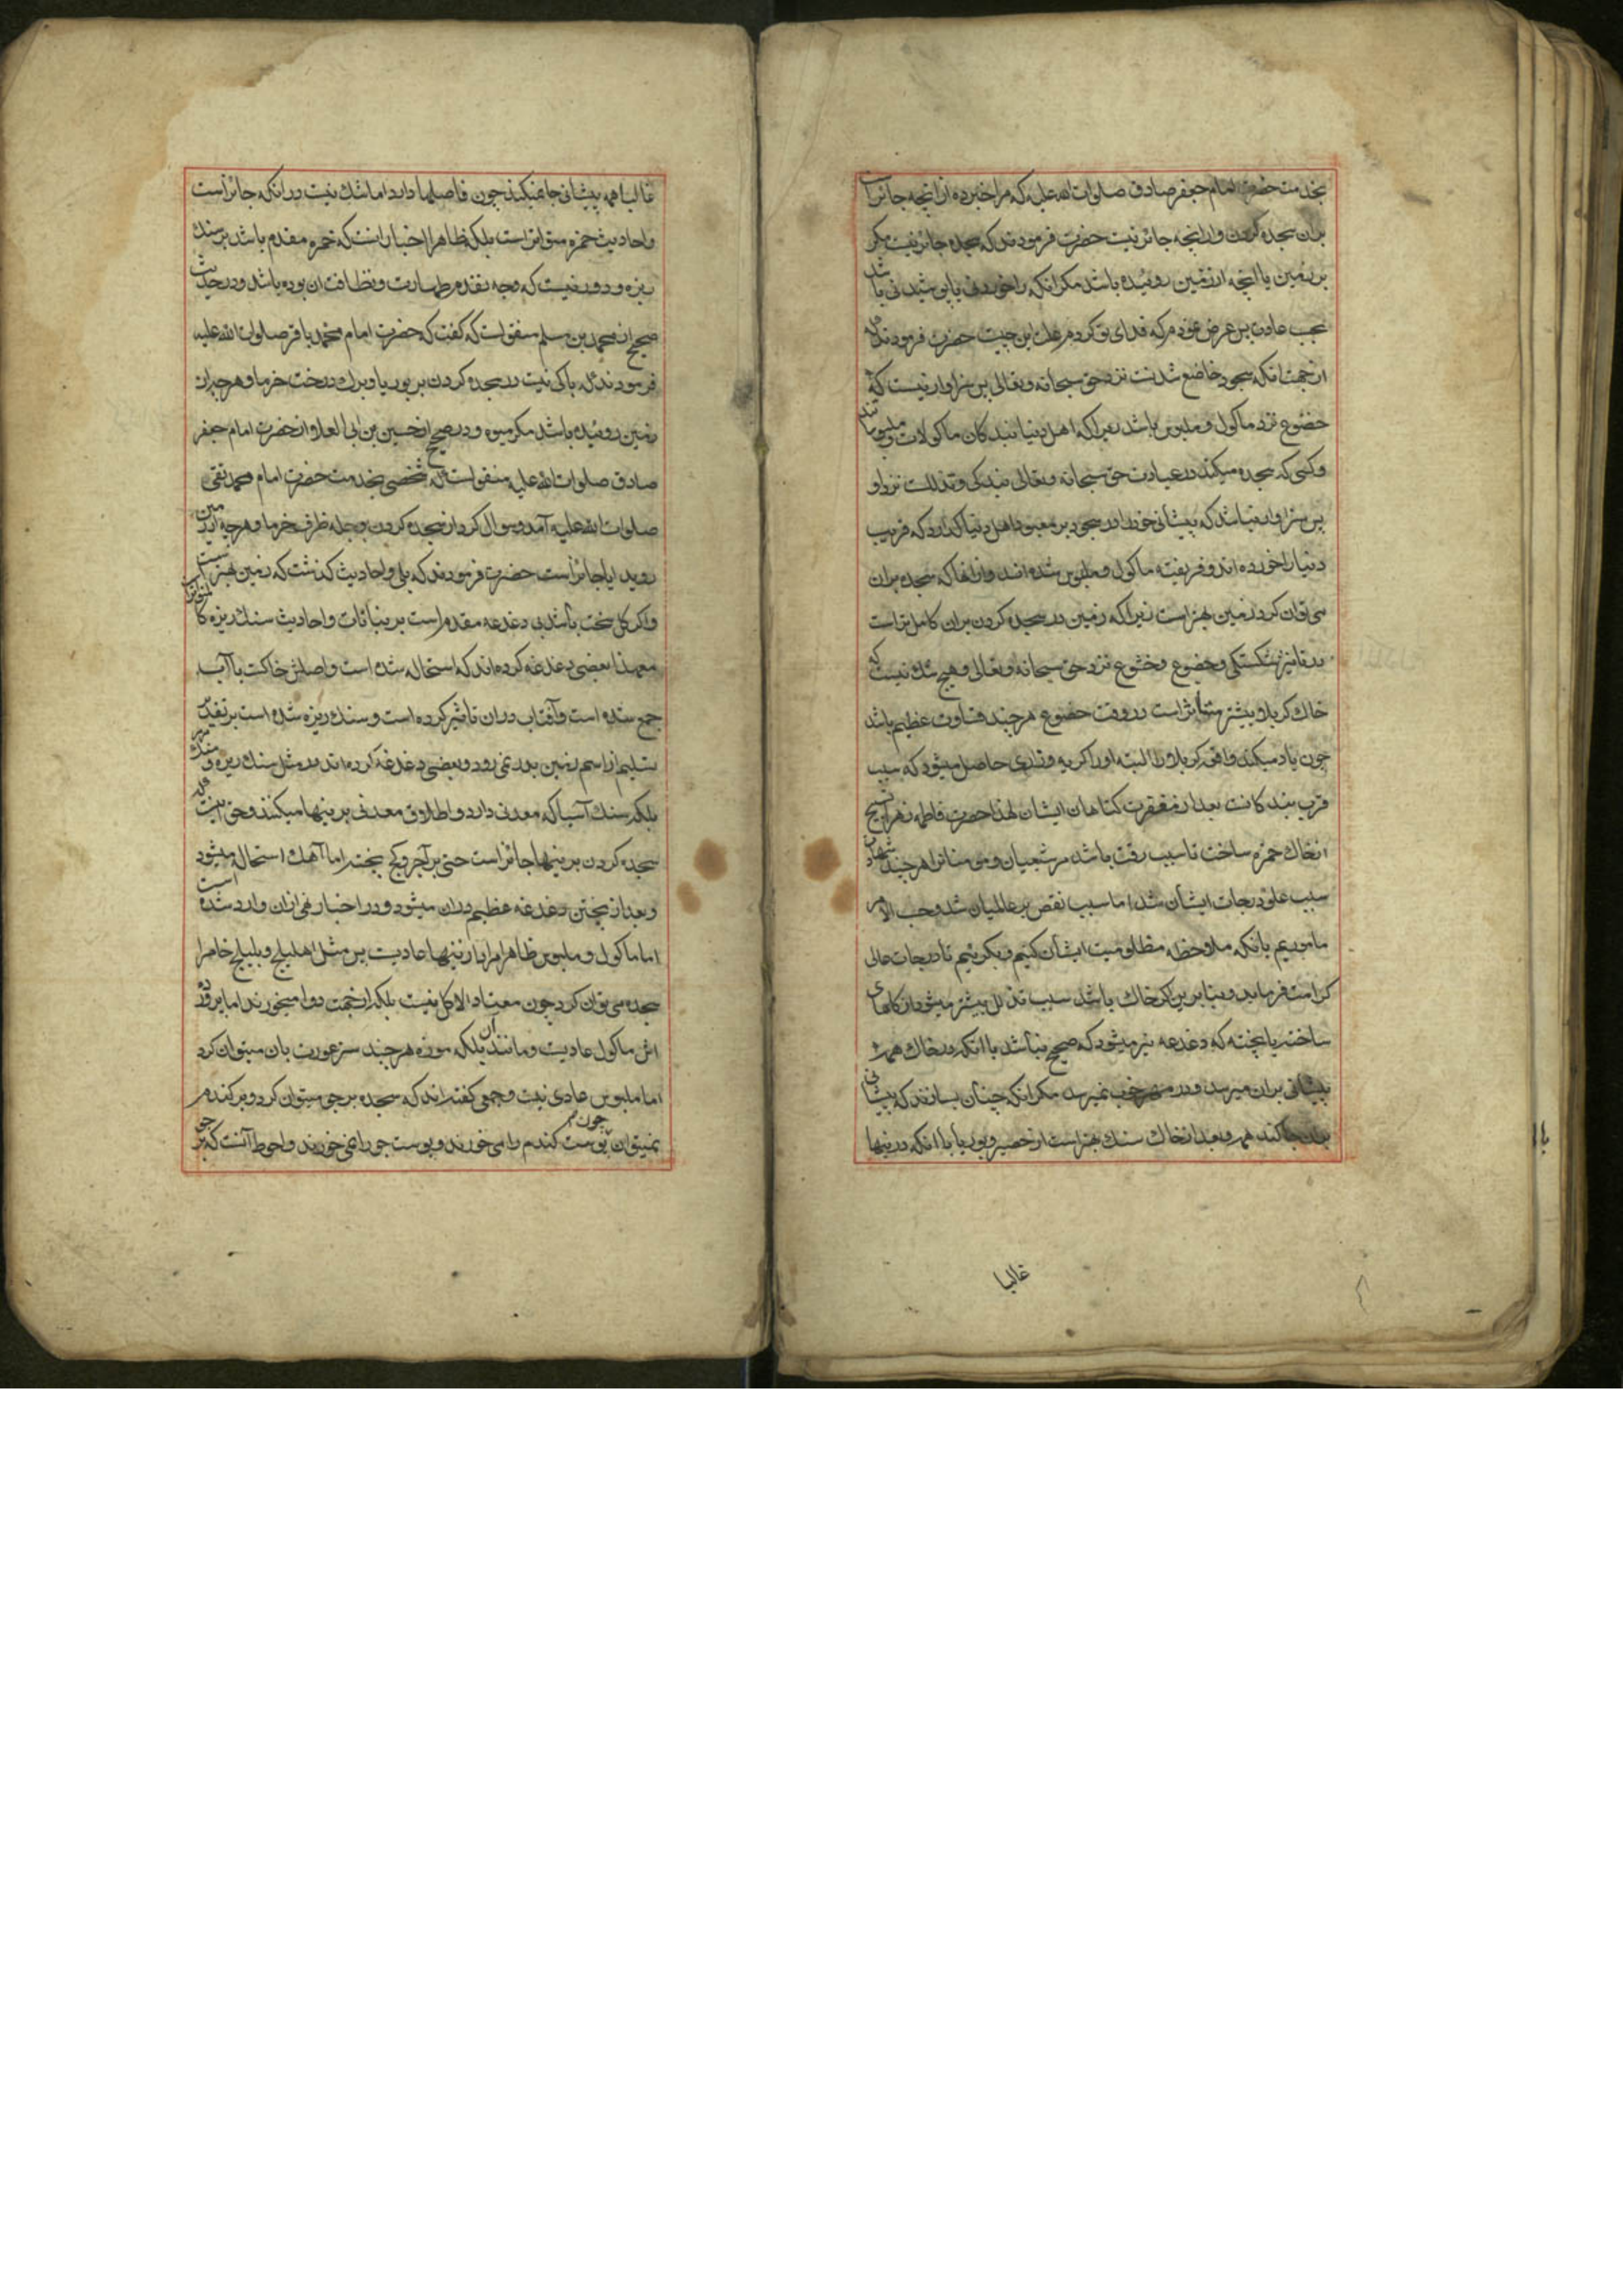 بخدمت حضرت امام جعفر صادق صلوات الله علیه که مرا خبر ده از انچه جائز است
بران سجده کردن و از انچه جائز نیست حضرت فرمودند که سجده جائز نیست مکر
بر زمین یا انچه از زمین روئیده باشد مکر انکه را خوردنی یا پوشیدنی باشد
بحسب عادت پس عرض نمودم که فدای تو کردم علت این چیست حضرت فرمودند که
از جهت انکه سجود خاضع شدنست نزد حق سبحانه و تعالی پس سزاوار نیست که
خضوع نزد ماکول و ملبوس باشد زیرا که اهل دنیا بندکان ماکولات و ملبوساتند
و کسی که سجده میکند در عبادت حق سبحانه و تعالی بندکی و تذللست نزد او
پس سزاوار نباشد که پیشانی خود را در سجود بر معبود اهل دنیا کذارد که فریب
دنیا را خورده اند و فریفته ماکول و ملبوس شده اند و از انها که سجده بران
می توان کرد زمین بهتر است زیرا که زمین در سجده کردن بران کاملتر است
در تاثیر شکستکی و خضوع و خشوع نزد حق سبحانه و تعالی و هیچ شک نیست که
خاک کربلا بیشتر متاثر است در وقت خضوع هر چند قساوت عظیم باشد
چون یاد میکند واقعه کربلا را البته او را کریه و زاری حاصل میشود که سبب
قرب بندکانست بعد از مغفرت کناهان ایشان لهذا حضرت فاطمه زهرا تسبیح
از خاک حمزه ساخت تا سبب رقت باشد مر شیعیان و مومنانرا هر چند شهادت
سبب علو درجات ایشان شد اما سبب نقص بر عالمیان شد و حسب الامر
ماموریم بانکه ملاحظه مظلومیت ایشان کنیم و بکرییم تا درجات عالی
کرامت فرماید و بنا برین اکر خاک باشد سبب تذلل بیشتر میشود از کاهای
ساخته یا پخته که دغدغه نیز میشود که صحیح نباشد با انکه در خاک همه
پیشانی بران میرسد و در مهر خوب نمیرسد مکر انکه چنان بسازند که پیشانی
بران جا کند همه و بعد از خاک سنک بهتر است از حصیر و بوریا با انکه در اینها
غالبا
غالبا همه پیشانی جا نمیکند چون فاصلها دارد اما شک نیست در انکه جائز است
و احادیث خمره متواتر است بلکه ظاهرا اخبار انست که خمره مقدم باشد بر سنک
ریزه و دور نیست که وجه تقدم طهارت و نظافت ان بوده باشد و در حدیث
صحیح از محمد بن مسلم منقولست که کفت که حضرت امام محمد باقر صلوات الله علیه
فرمودند که باکی نیست در سجده کردن بر بوریا و برک درخت خرما و هر چه از
زمین روئیده باشد مکر میوه و در صحیح از حسین بن ابی العلا و از حضرت امام جعفر
صادق صلوات الله علیه منقولست که شخصی بخدمت حضرت امام محمد تقی
صلوات الله علیه آمد و سوال کرد از سجده کردن و جله ظرف خرما و هر چه از زمین
روید ایا جائز است حضرت فرمودند که بلی و احادیث کذشت که زمین بهتر است
و اکر کل سخت باشد بی دغدغه مقدم است بر نباتات و احادیث سنک ریزه کا
معهذا بعضی دغدغه کرده اند که استحاله شده است و اصلش خاکست با آب
جمع شده است و آفتاب دران تاثیر کرده است و سنک ریزه شده است بر تقدیر
تسلیم از اسم زمین بدر نمی رود و بعضی دغدغه کرده اند در مثل سنک ریزه و سنک
بلکه سنک آسیا که معدنی دارد و اطلاق معدنی بر ینها میکنند و حق انست که
سجده کردن بر ینها جائز است حتی بر آجر و کچ پخته اما آهک استحاله میشود
و بعد از پختن دغدغه عظیم دران میشود و در اخبار نهی ازان وارد شده است
اما ماکول و ملبوس ظاهرا مراد از ینها عادیست پس مثل اهلیلج و بلیلج خام را
سجده می توان کرد چون معتاد الاکل نیست بلکه از جهت دوا میخورند اما بروده
اش ماکول عادیست و مانند آن بلکه موزه هر چند ستر عورت بان میتوان کرد
اما ملبوس عادی نیست و جمعی کفته اند که سجده بر جو میتوان کرد و بر کندم
نمیتوان چون پوست کندم را می خورند و پوست جو را نمی خورند و احوط آنست که بر جو